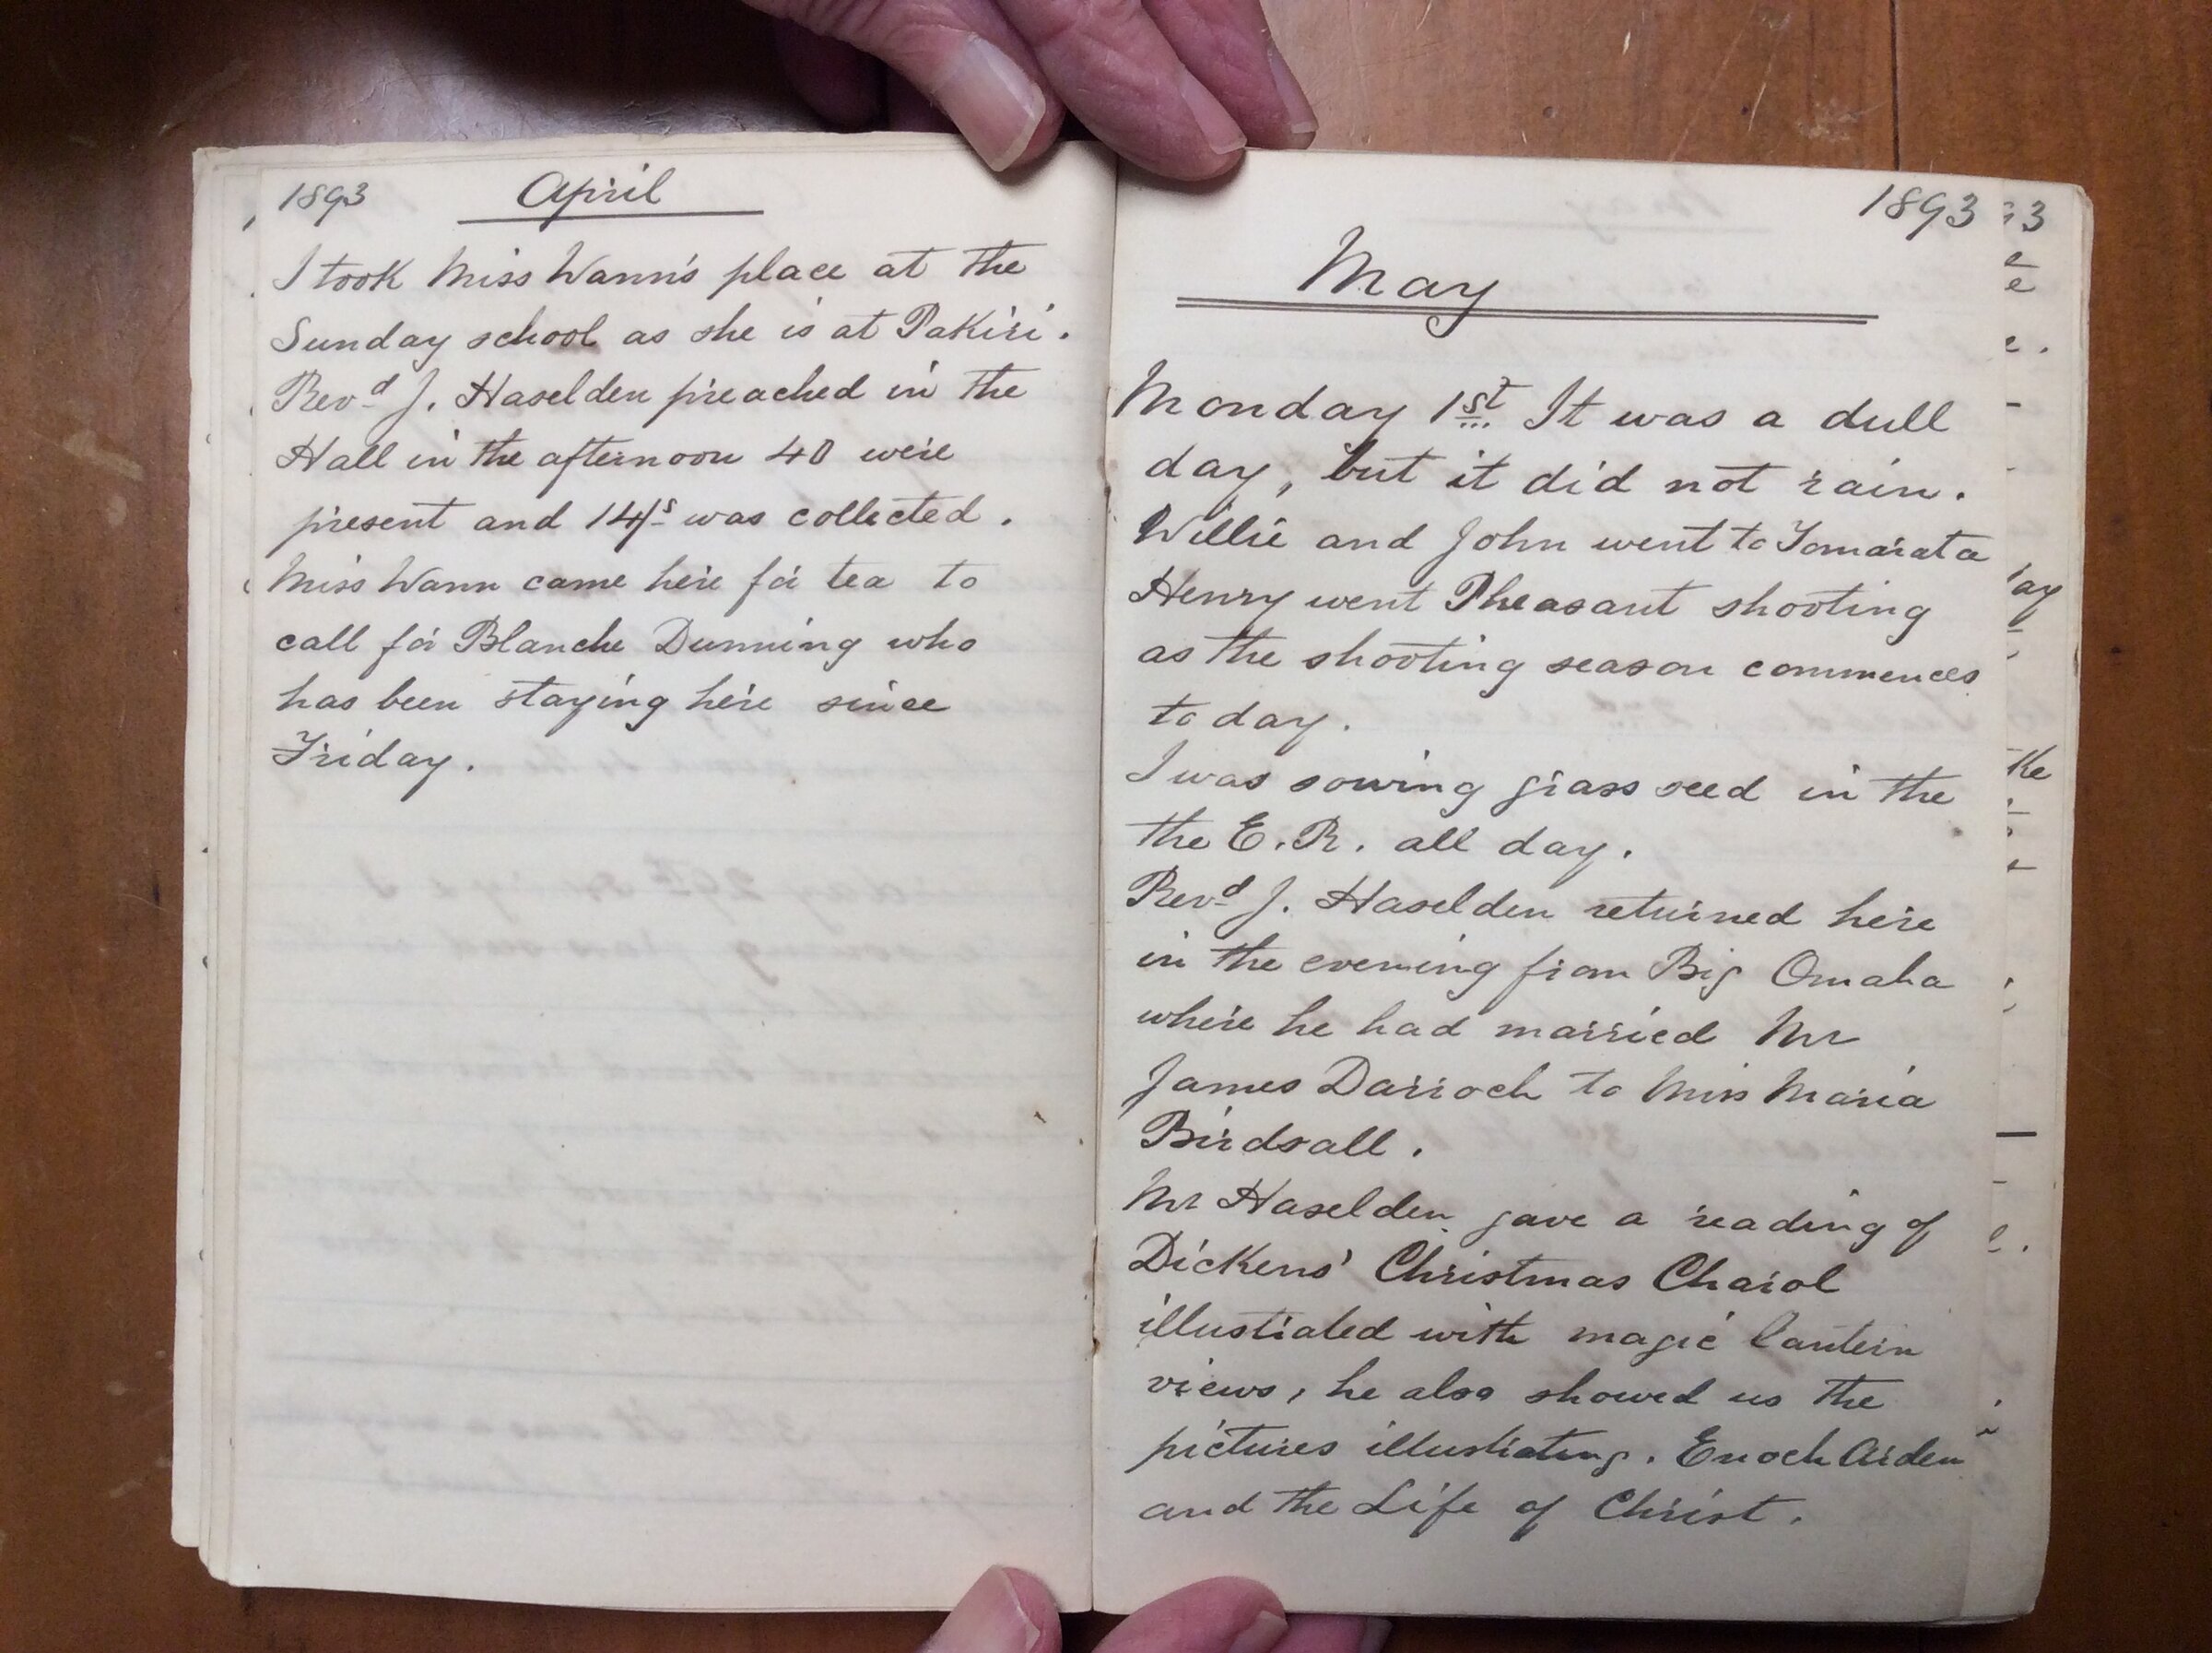 1893 April
I took Miss Wann's place at the
Sunday school as she is at Pakiri.
Revd J. Haselden preached in the
Hall in the afternoon 40 were
present and 14/s was collected.
Miss Wann came here for tea to
call for Blanche Dunning who
has been staying here since
Friday.
1893
May
Monday 1st It was a dull
day, but it did not rain.
Willie and John went to Tomarata
Henry went Pheasant shooting
as the shooting season commences
to day.
I was sowing grass seed in the
the E.R. all day.
Revd J. Haselden returned here
in the evening from Big Omaha
where he had married Mr
James Darroch to Miss Maria
Birdsall.
Mr Haselden gave a reading of
Dickens' Christmas Charol
illustrated with magic lantern
views, he also showed us the
pictures illustrating. Enoch Arden
and the Life of Christ.